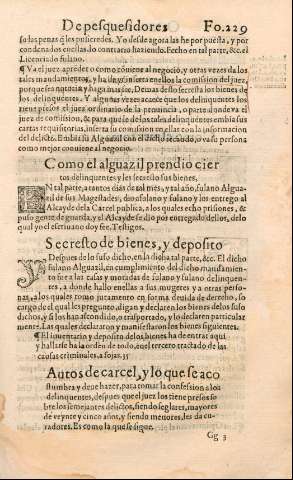 De pesquesidores Fo.229
so las penas q̃ les pusieredes. Yo desde agora las he por puesta, y por
condenados en ellas, lo contrario haziendo. Fecho en tal parte, &c. el
Licenciado fulano.
¶ Va el juez a prẽder o como cõuiene al negocio, y otras vezes da los
tales mandamientos, y ha de yr inserta en ellos la comision del juez,
porque sea notoria y haga mayor. Demas desto secresta los bienes de
los delinquentes. Y algunas vezes acaece que los delinquentes los
tiene preso el juez ordinario de la prouincia, o parte a donde va el
juez de comision, & para que se de los tales delinquentes embia sus
cartas requisitorias, inserta su comision en ellas con la informacion
del delicto. Embia su Alguazil con el dicho recaudo, o va su persona
como mejor conuiene al negocio.
Como el alguazil prendio cier
tos delinquentes y les secresto sus bienes.
EN tal parte, a tantos dias de tal mes, y tal año, fulano Algua
zil de sus Magestades, dõ fulano y fulano y los entrego al
Alcayde dela Carcel publica, a los quales echo prisiones, &
puso gente de guarda, y el Alcayde se dio por entregado dellos, de lo
qual yo el escriuano doy fee. Testigos.
Secresto de bienes, y deposito
Y Despues de lo suso dicho, en la dicha tal parte, &c. El dicho
fulano Alguazil, en cumplimiento del dicho mandamien-
to fue a las casas y moradas de fulano y fulano delinquen-
tes, a donde hallo en ellas a sus mugeres y a otras perso-
nas, a los quales tomo juramento en forma deuida de derecho, so
cargo de el qual les pregunto, digan y declaren los bienes delos suso
dichos, y si los han ascondido, o trasportado, y lo declaren particular
mente. Las quales declararon y manifestaron los bienes siguientes.
¶ El inuentario y deposito delos, bienes ha de entrar aqui
y hallarse ha la orden de todo, en el tercero tractado de las
causas criminales, a fojas. 35
Autos de carcel, y lo que se aco
stumbra y deue hazer, para tomar la confession a los
delinquentes, despues que el juez los tiene presos so
bre los semejantes delictos, siendo seglares, mayores
de veynte y cinco años, y siendo menores, les da cu-
radores. Es como la que se sigue.
Gg 3